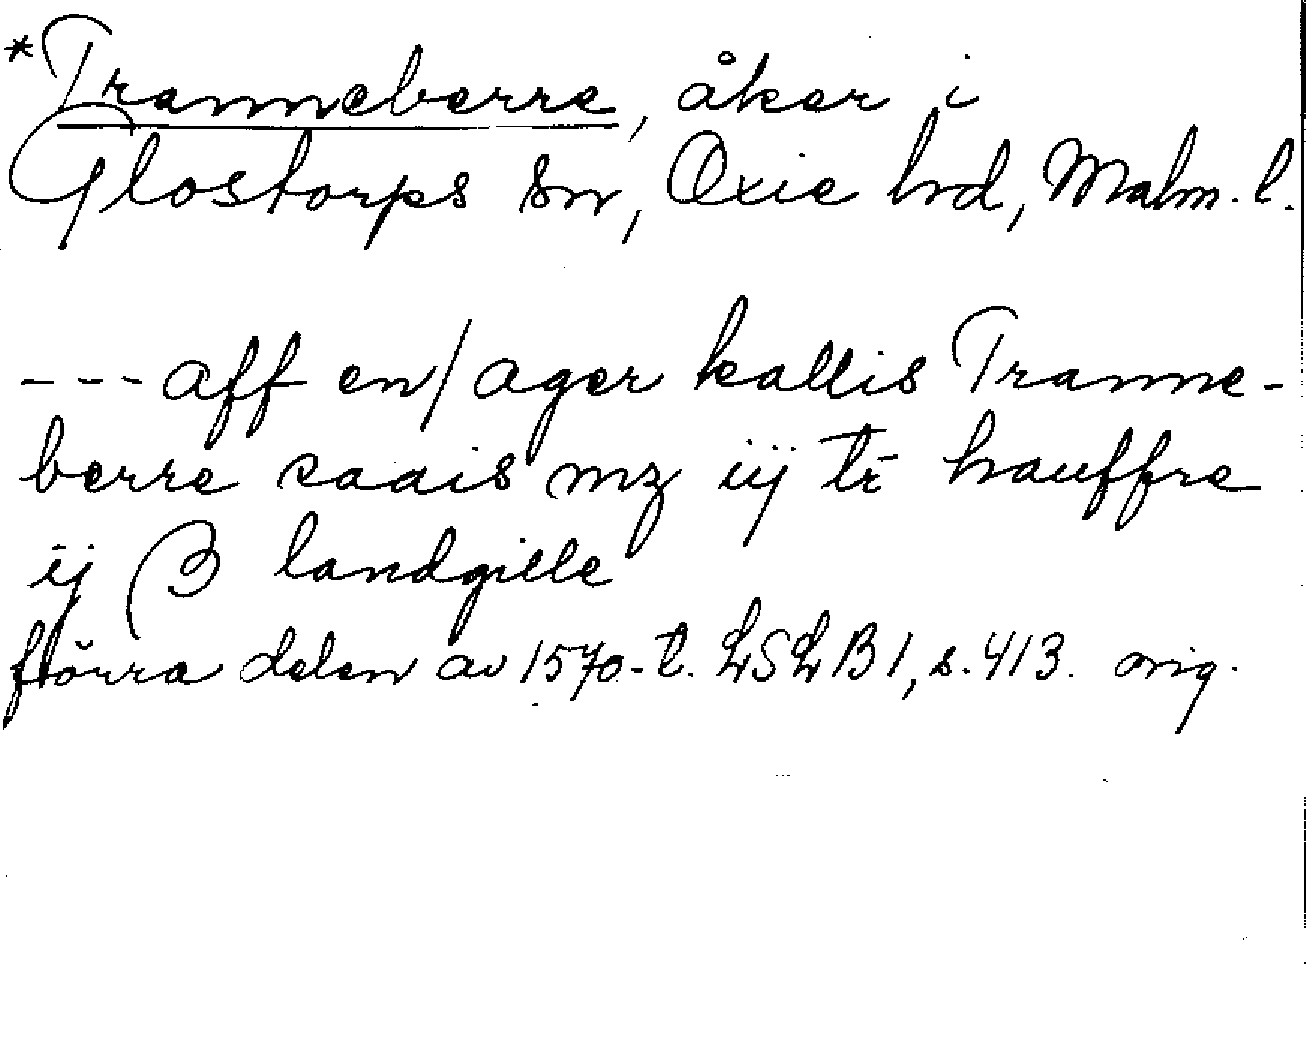 *Tranneberre, åker i
Glostorps sn, Oxie hd, Malm. l.
--- aff en/ ager kallis Tranne-
berre saais mz iij tr̄ hauffre
ij β landgille
förra delen av 1570-t. LSLB 1, s. 413. orig.